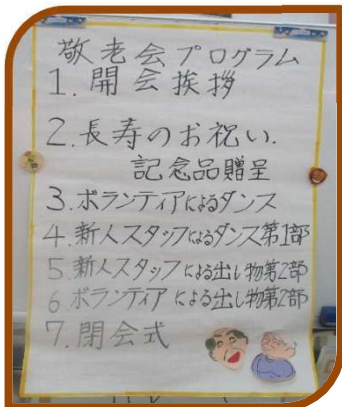 敬老会プログラム
1. 開会挨拶
2. 長寿のお祝い.
記念品贈呈
3. ボランティアによるダンス
4. 新人スタッフによるダンス第1部
5. 新人スタッフによる出し物第2部
6. ボランティアによる出し物第2部
7. 閉会式